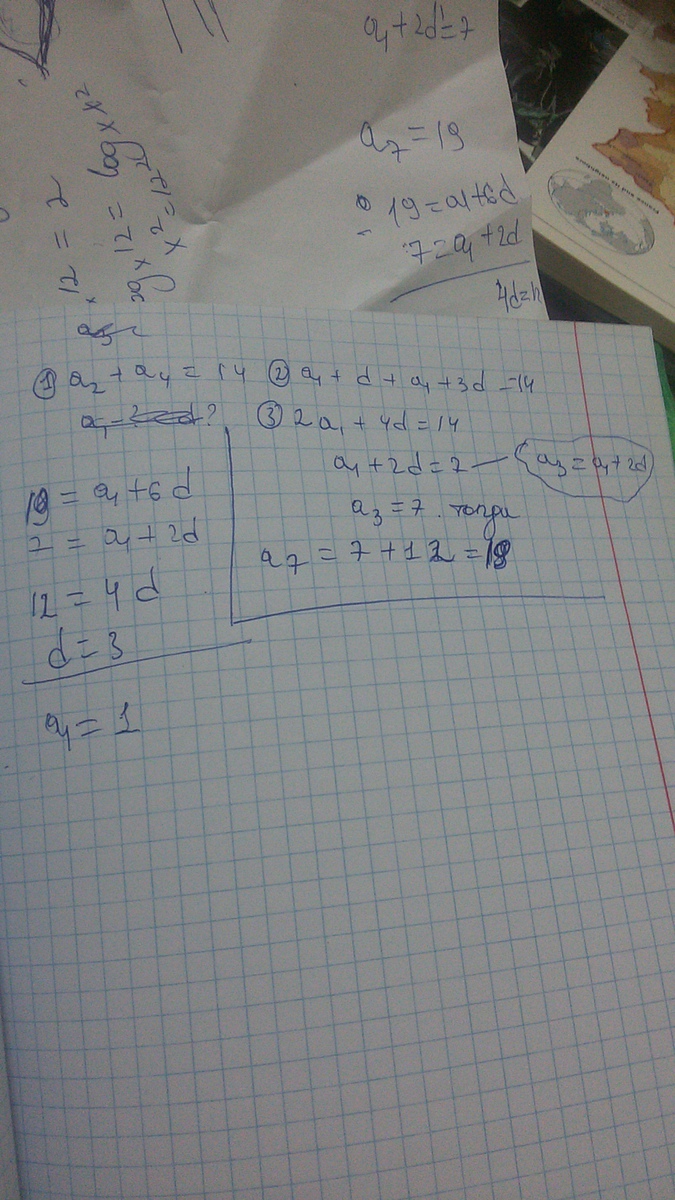 a₁ + 2d = 7
a₇ = 19
19 = a₁ + 6d
7 = a₁ + 2d
4d = 
12 = 2
log x 12 = log x x²
x² = 12
① a₂ + a₄ = 14 ② a₁ + d + a₁ + 3d = 14
③ 2a₁ + 4d = 14
a₁ + 2d = 7 — a₃ = a₁ + 2d
a₃ = 7. тогда
a₇ = 7 + 12 = 19
19 = a₁ + 6d
7 = a₁ + 2d
12 = 4d
d = 3
a₁ = 1